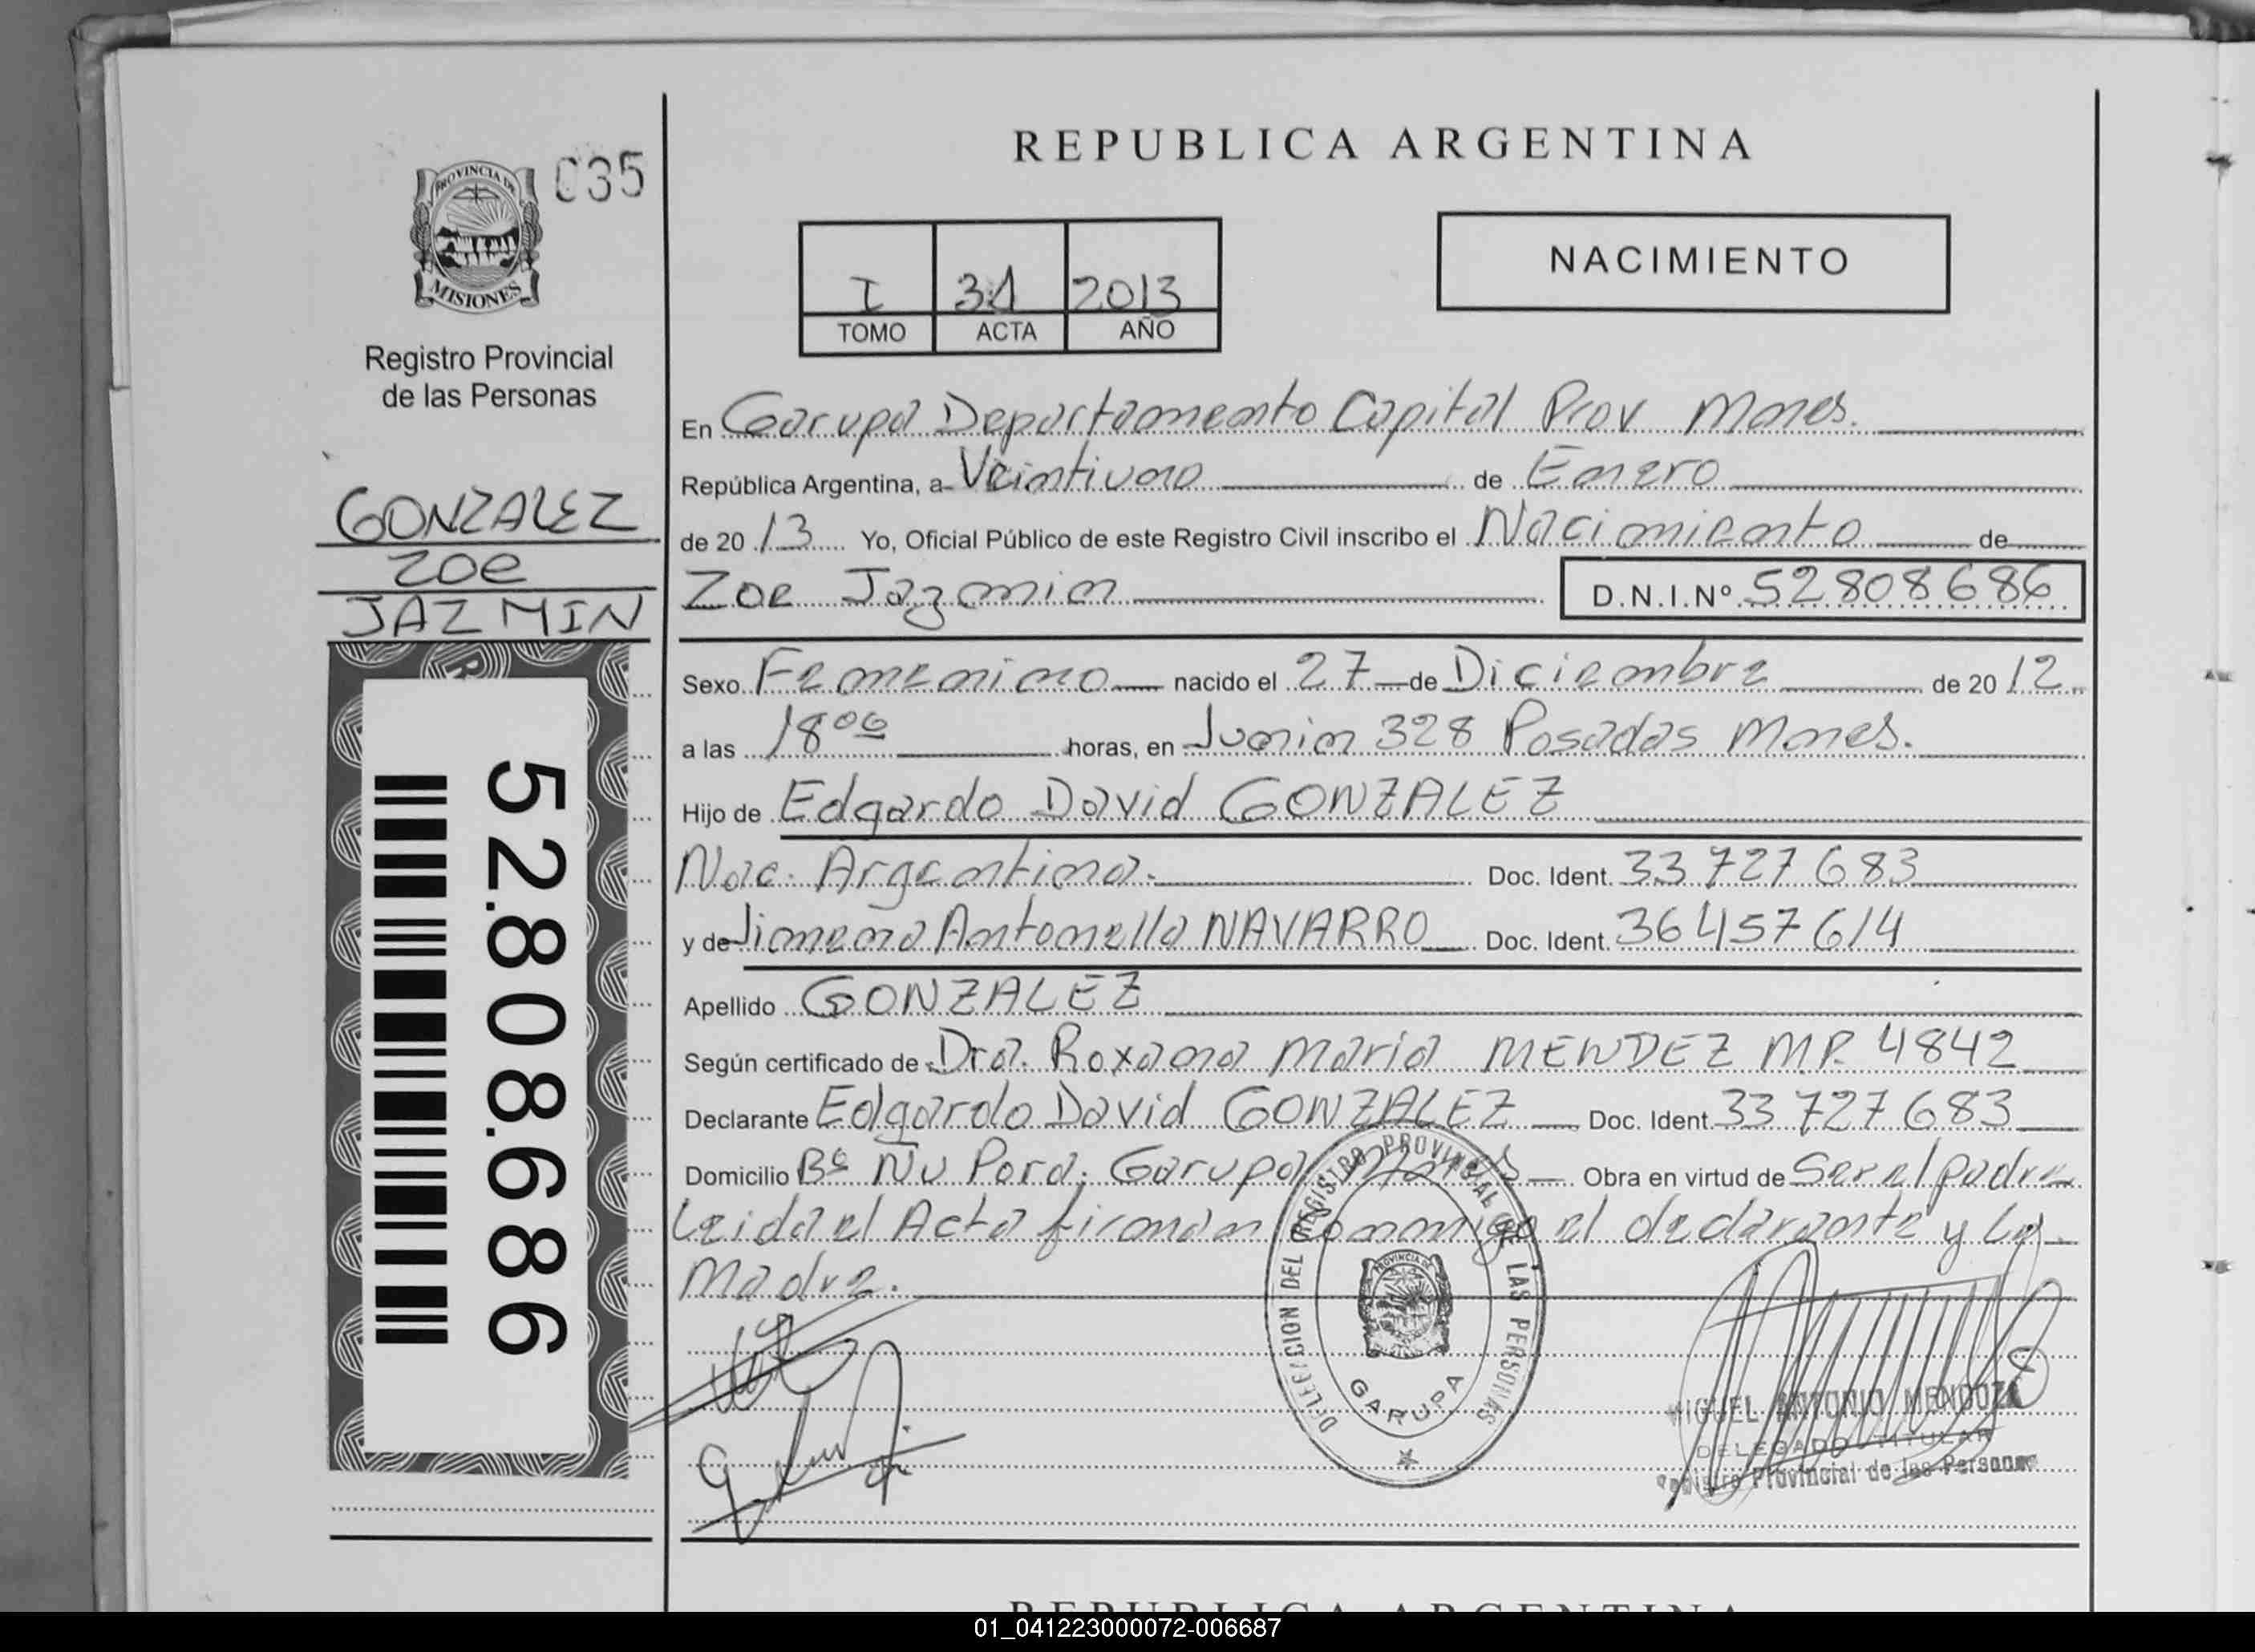 035
PROVINCIA DE
MISIONES
Registro Provincial
de las Personas
GONZALEZ
Zoe
JAZMIN
52.808.686
REPUBLICA ARGENTINA
I 31 2013
TOMO ACTA AÑO
NACIMIENTO
En Garupa Departamento Capital Prov Mnes.
República Argentina, a Veintiuno de Enero
de 20 13 Yo, Oficial Público de este Registro Civil inscribo el Nacimiento de
Zoe Jazmin D.N.I.Nº 52808686
Sexo Femenino nacido el 27 de Diciembre de 20 12
a las 18 00 horas, en Junin 328 Posadas Mnes.
Hijo de Edgardo David GONZALEZ
Nac. Argentina. Doc. Ident. 33 727 683
y de Jimena Antonella NAVARRO Doc. Ident. 36 457 614
Apellido GONZALEZ
Según certificado de Dra. Roxana Maria MENDEZ MP. 4842
Declarante Edgardo David GONZALEZ Doc. Ident. 33 727 683
Domicilio Bº Ñu Pora. Garupa Mnes Obra en virtud de Ser el padre
Leida el Acta firman conmigo el declarante y La
Madre.
DELEGACION DEL REGISTRO PROVINCIAL DE LAS PERSONAS
PROVINCIA DE
GARUPA
MIGUEL ANTONIO MENDOZA
DELEGADO TITULAR
Registro Provincial de las Personas
REPUBLICA ARGENTINA
01_041223000072-006687